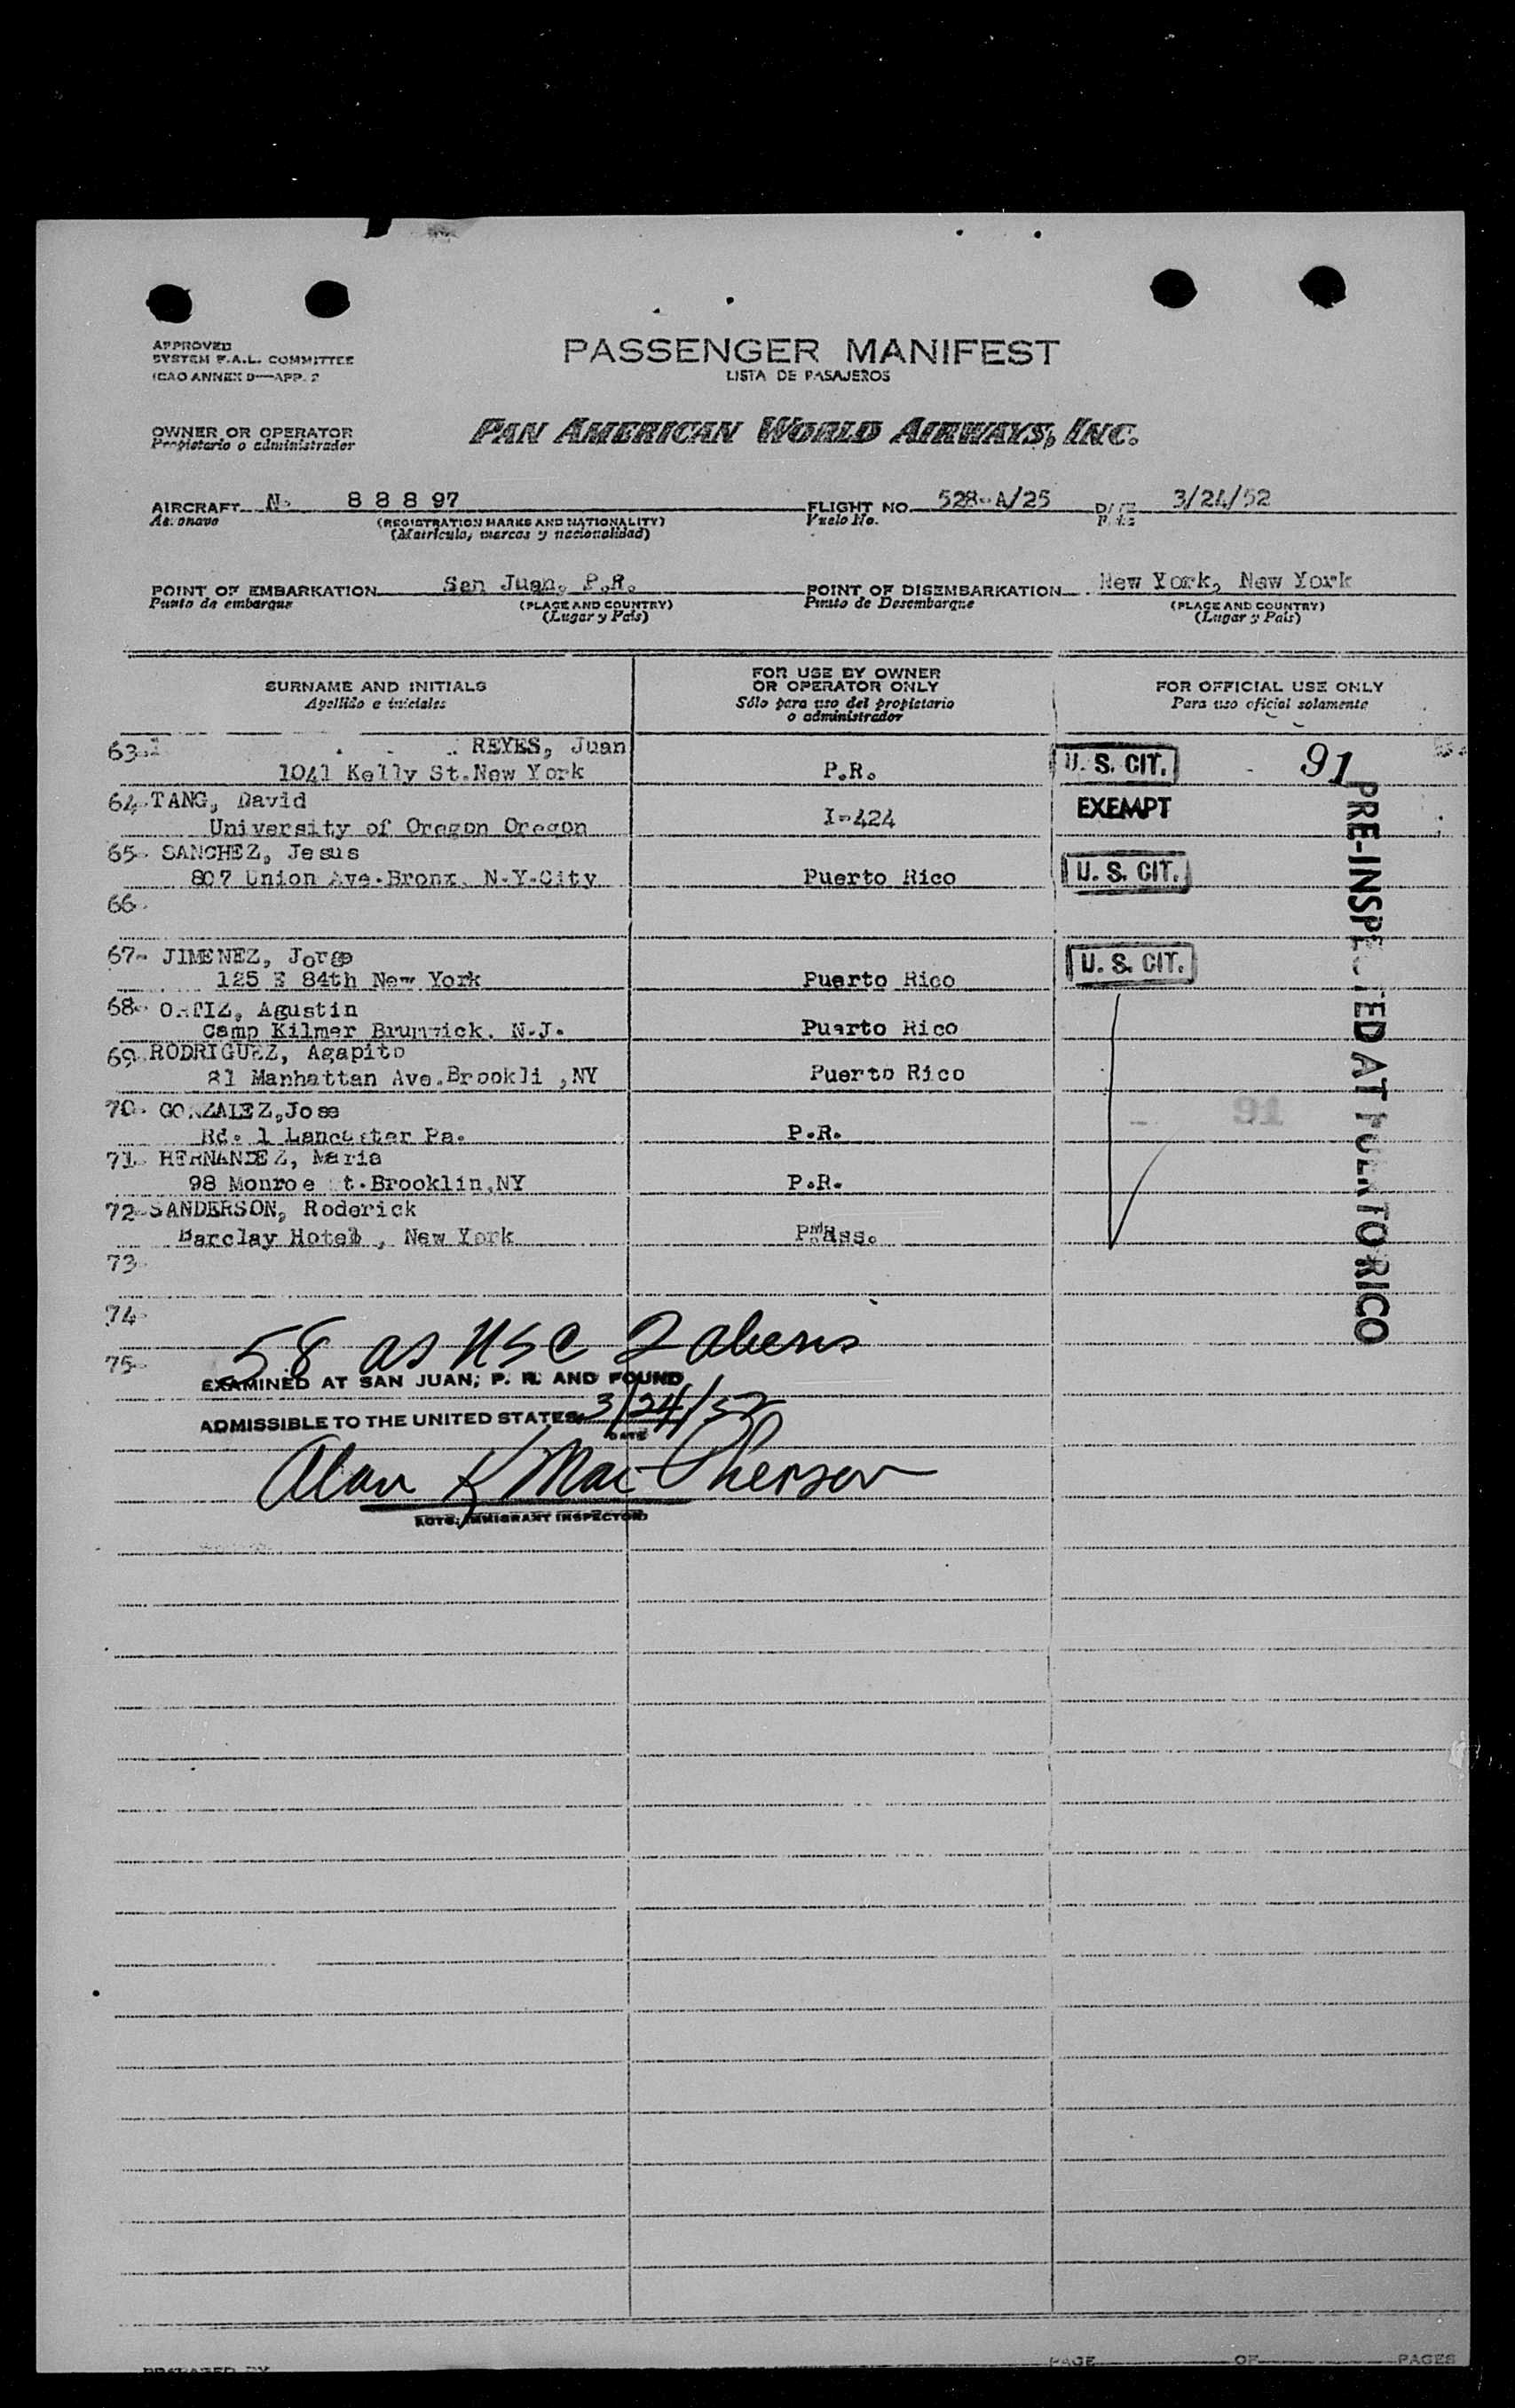 APPROVED
SYSTEM F.A.L. COMMITTEE
ICAO ANNEX 9—APP. 2
PASSENGER MANIFEST
LISTA DE PASAJEROS
OWNER OR OPERATOR
Propietario o administrador
PAN AMERICAN WORLD AIRWAYS, INC.
AIRCRAFT N. 8 8 8 97
Aeronave
(REGISTRATION MARKS AND NATIONALITY)
(Matricula, marcas y nacionalidad)
FLIGHT NO. 528-A/25
Vuelo No.
3/24/52
POINT OF EMBARKATION San Juan, P.R.
Punto de embarque
(PLACE AND COUNTRY)
(Lugar y País)
POINT OF DISEMBARKATION New York, New York
Punto de Desembarque
(PLACE AND COUNTRY)
(Lugar y País)
SURNAME AND INITIALS
Apellido e iniciales
FOR USE BY OWNER
OR OPERATOR ONLY
Sólo para uso del propietario
o administrador
FOR OFFICIAL USE ONLY
Para uso oficial solamente
63. REYES, Juan
1041 Kelly St.New York P.R. U. S. CIT. 91
64. TANG, David
University of Oregon Oregon I-424 EXEMPT
65- SANCHEZ, Jesus
807 Union Ave.Bronx, N.Y.City Puerto Rico U. S. CIT.
66.
67- JIMENEZ, Jorge
125 E 84th New York Puerto Rico U. S. CIT.
68- ORTIZ, Agustin
Camp Kilmer Brunwick, N.J. Puerto Rico
69. RODRIGUEZ, Agapito
81 Manhattan Ave.Brookli ,NY Puerto Rico
70- GONZALEZ,Jose
Rd. 1 Lancaster Pa. P.R.
91
71- HERNANDEZ, Maria
98 Monroe t.Brooklin,NY P.R.
72-SANDERSON, Roderick
Barclay Hotel , New York
73-
74-
75-
PRE-INSPECTED AT PUERTO RICO
58 as USC 2 aliens
EXAMINED AT SAN JUAN, P. R. AND FOUND
ADMISSIBLE TO THE UNITED STATES 3/24/52
DATE
Alan K MacPherson
ACTG. IMMIGRANT INSPECTOR
PREPARED BY
PAGE OF PAGES